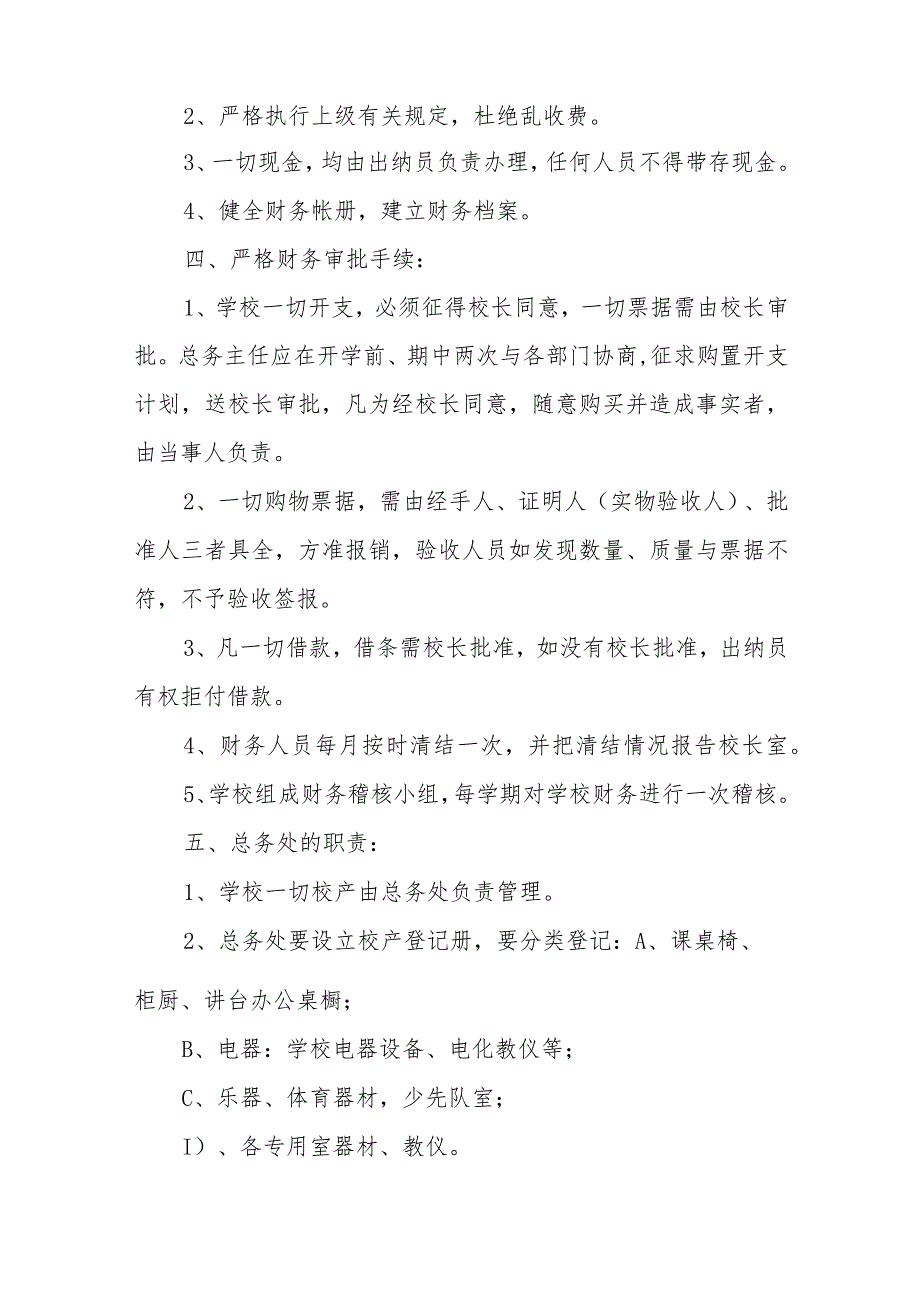 2、严格执行上级有关规定，杜绝乱收费。
3、一切现金，均由出纳员负责办理，任何人员不得带存现金。
4、健全财务帐册，建立财务档案。
四、严格财务审批手续：
1、学校一切开支，必须征得校长同意，一切票据需由校长审
批。总务主任应在开学前、期中两次与各部门协商,征求购置开支
计划，送校长审批，凡为经校长同意，随意购买并造成事实者，
由当事人负责。
2、一切购物票据，需由经手人、证明人（实物验收人）、批
准人三者具全，方准报销，验收人员如发现数量、质量与票据不
符，不予验收签报。
3、凡一切借款，借条需校长批准，如没有校长批准，出纳员
有权拒付借款。
4、财务人员每月按时清结一次，并把清结情况报告校长室。
5、学校组成财务稽核小组，每学期对学校财务进行一次稽核。
五、总务处的职责：
1、学校一切校产由总务处负责管理。
2、总务处要设立校产登记册，要分类登记：A、课桌椅、
柜厨、讲台办公桌橱；
B、电器：学校电器设备、电化教仪等；
C、乐器、体育器材，少先队室；
I）、各专用室器材、教仪。